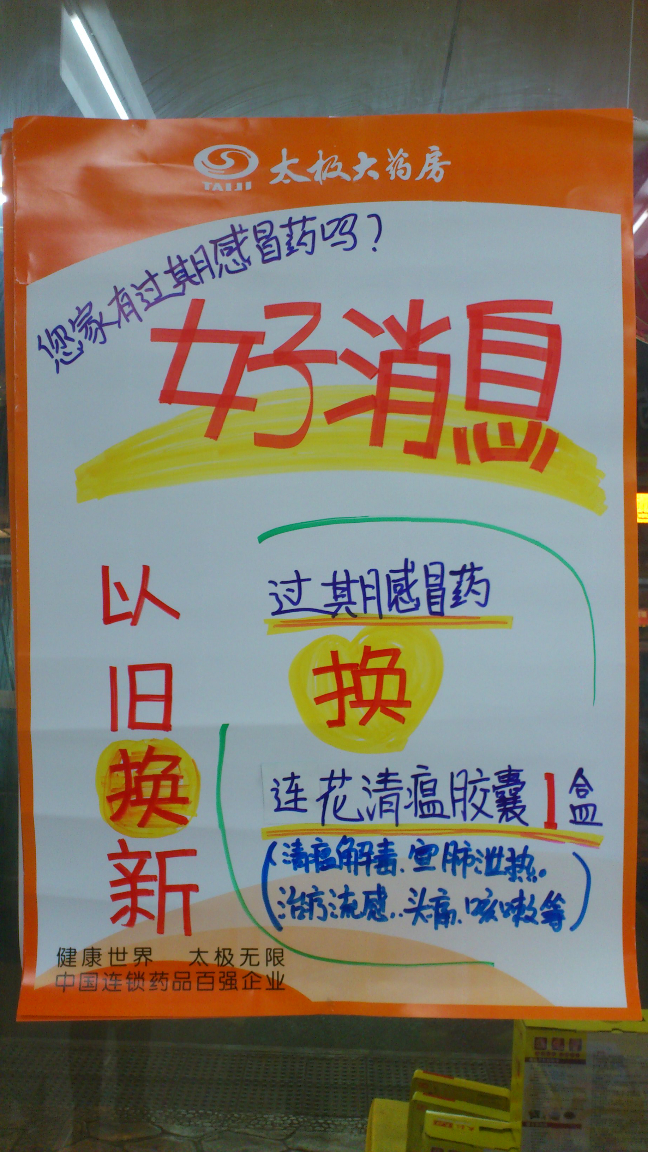 TAIJI 太极大药房
您家有过期感冒药吗？
好消息
以旧换新
过期感冒药
换
连花清瘟胶囊1盒
（清瘟解毒、宣肺泄热。
治疗流感、头痛、咳嗽等）
健康世界 太极无限
中国连锁药品百强企业